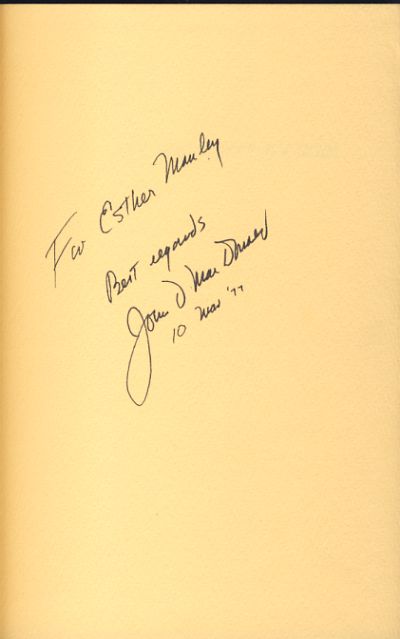 For Esther Manley
Best regards
John D MacDonald
10 Mar '77